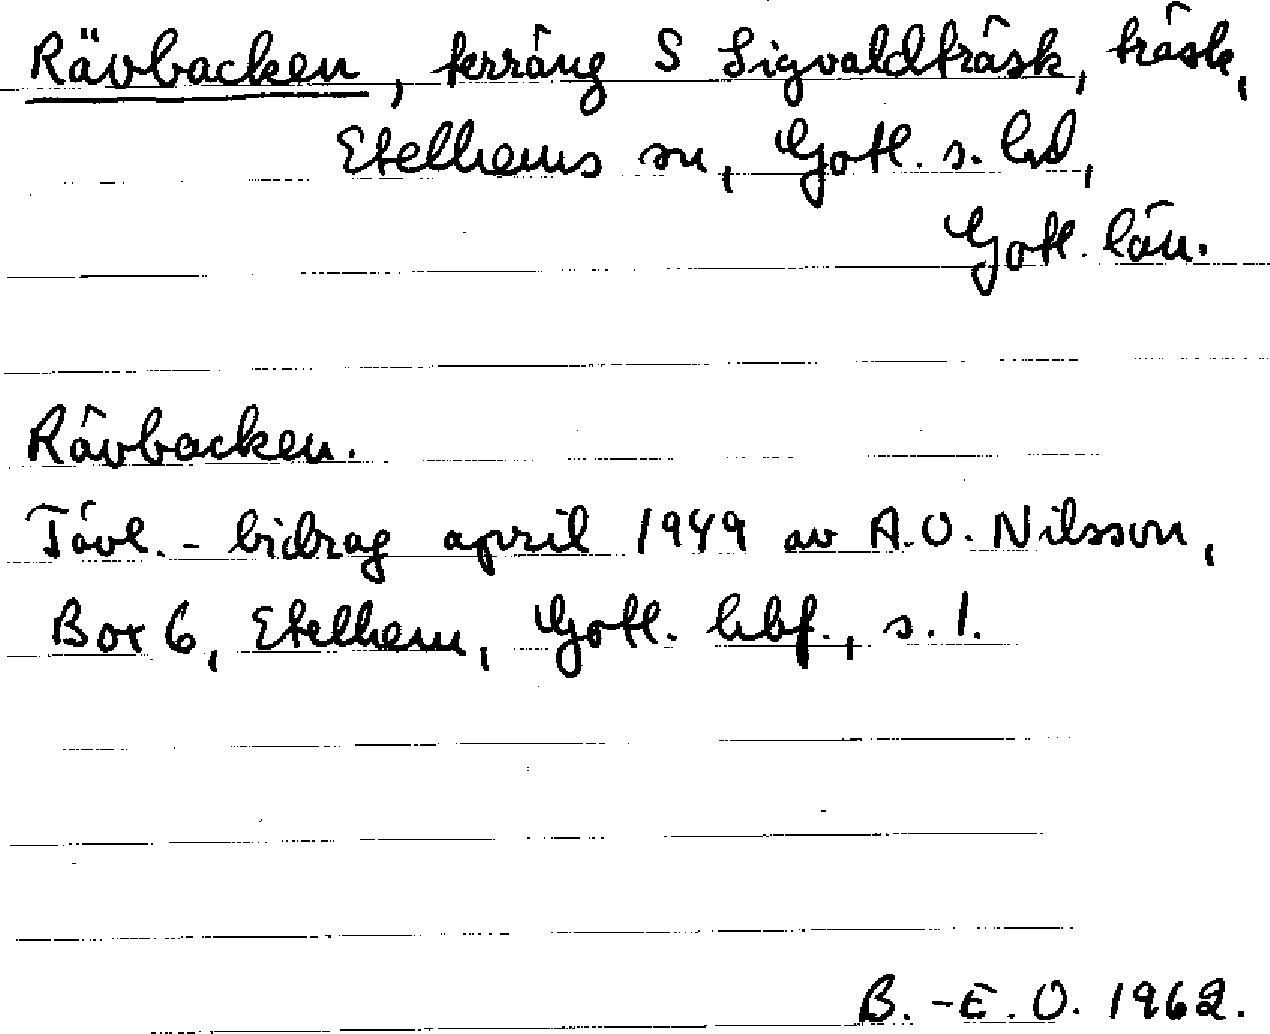 Rävbacken, terräng S Sigvaldträsk, träsk,
Etelhems sn, Gotl. s. hd,
Gotl. län.
Rävbacken.
Tävl.-bidrag april 1949 av A.O. Nilsson,
Box 6, Etelhem, Gotl. hbf., s. 1.
B.-E.O. 1962.